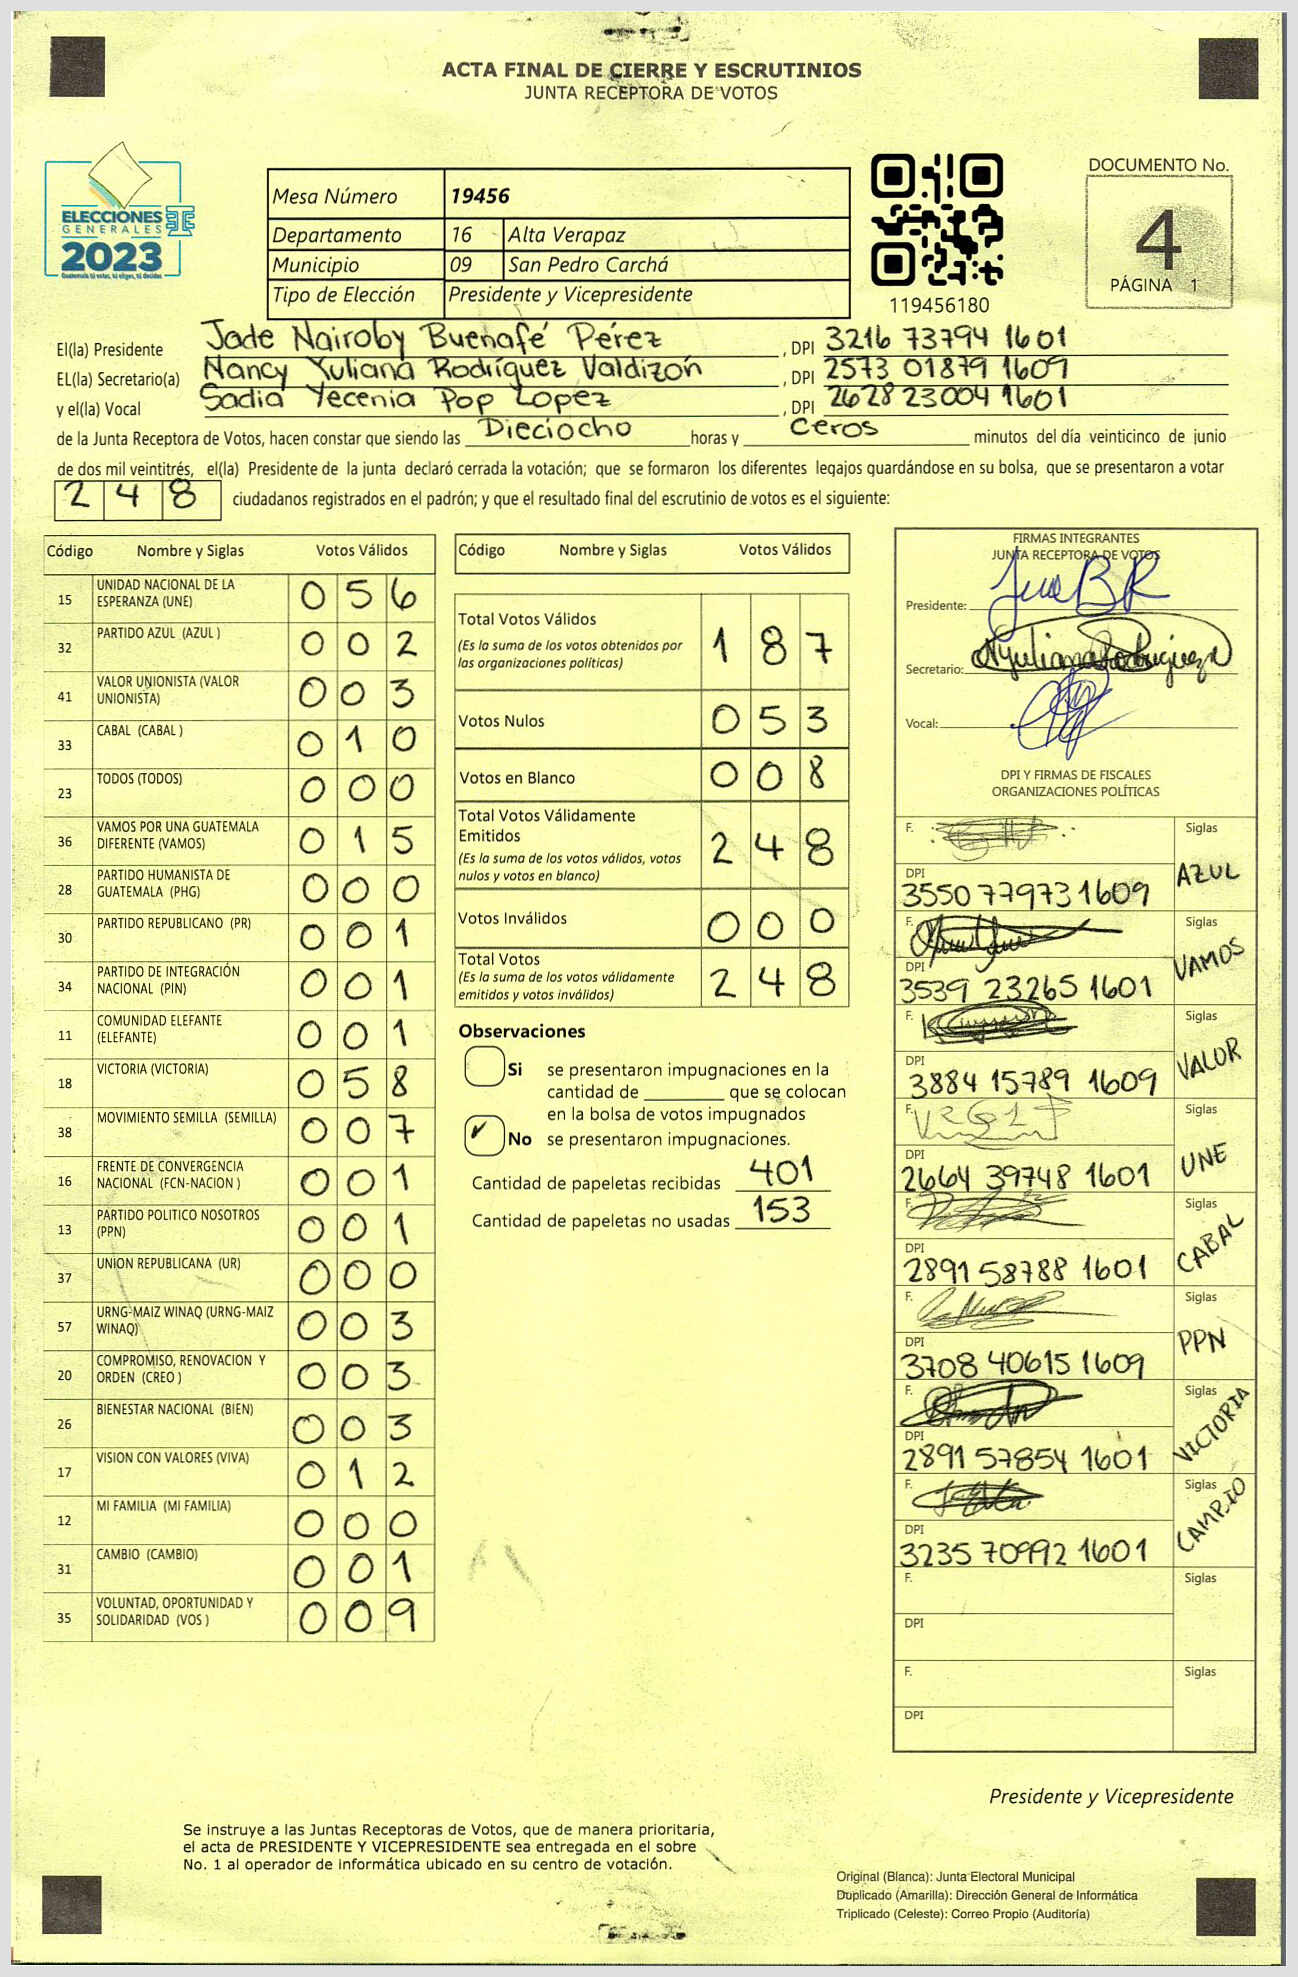 ACTA FINAL DE CIERRE Y ESCRUTINIOS
JUNTA RECEPTORA DE VOTOS
ELECCIONES
GENERALES
2023
Mesa Número 19456
Departamento 16 Alta Verapaz
Municipio 09 San Pedro Carchá
Tipo de Elección Presidente y Vicepresidente
119456180
DOCUMENTO No.
4
PÁGINA 1
El(la) Presidente Jade Nairoby Buenafé Pérez , DPI 3216 73794 1601
EL(la) Secretario(a) Nancy Yuliana Rodríguez Valdizón , DPI 2573 01879 1609
y el(la) Vocal Sadia Yecenia Pop Lopez , DPI 2628 23004 1601
de la Junta Receptora de Votos, hacen constar que siendo las Dieciocho horas y Ceros minutos del día veinticinco de junio
de dos mil veintitrés, el(la) Presidente de la junta declaró cerrada la votación; que se formaron los diferentes legajos guardándose en su bolsa, que se presentaron a votar
248 ciudadanos registrados en el padrón; y que el resultado final del escrutinio de votos es el siguiente:
Código Nombre y Siglas Votos Válidos
15 UNIDAD NACIONAL DE LA ESPERANZA (UNE) 056
32 PARTIDO AZUL (AZUL ) 002
41 VALOR UNIONISTA (VALOR UNIONISTA) 003
33 CABAL (CABAL ) 010
23 TODOS (TODOS) 000
36 VAMOS POR UNA GUATEMALA DIFERENTE (VAMOS) 015
28 PARTIDO HUMANISTA DE GUATEMALA (PHG) 000
30 PARTIDO REPUBLICANO (PR) 001
34 PARTIDO DE INTEGRACIÓN NACIONAL (PIN) 001
11 COMUNIDAD ELEFANTE (ELEFANTE) 001
18 VICTORIA (VICTORIA) 058
38 MOVIMIENTO SEMILLA (SEMILLA) 007
16 FRENTE DE CONVERGENCIA NACIONAL (FCN-NACION ) 001
13 PARTIDO POLITICO NOSOTROS (PPN) 001
37 UNION REPUBLICANA (UR) 000
57 URNG-MAIZ WINAQ (URNG-MAIZ WINAQ) 003
20 COMPROMISO, RENOVACION Y ORDEN (CREO ) 003
26 BIENESTAR NACIONAL (BIEN) 003
17 VISION CON VALORES (VIVA) 012
12 MI FAMILIA (MI FAMILIA) 000
31 CAMBIO (CAMBIO) 001
35 VOLUNTAD, OPORTUNIDAD Y SOLIDARIDAD (VOS ) 009
Código Nombre y Siglas Votos Válidos
Total Votos Válidos 187
(Es la suma de los votos obtenidos por
las organizaciones políticas)
Votos Nulos 053
Votos en Blanco 008
Total Votos Válidamente
Emitidos 248
(Es la suma de los votos válidos, votos
nulos y votos en blanco)
Votos Inválidos 000
Total Votos 248
(Es la suma de los votos válidamente
emitidos y votos inválidos)
Observaciones
Si se presentaron impugnaciones en la
cantidad de ________ que se colocan
en la bolsa de votos impugnados
No se presentaron impugnaciones.
Cantidad de papeletas recibidas 401
Cantidad de papeletas no usadas 153
FIRMAS INTEGRANTES
JUNTA RECEPTORA DE VOTOS
Presidente:
Secretario:
Vocal:
DPI Y FIRMAS DE FISCALES
ORGANIZACIONES POLÍTICAS
F. Siglas
DPI 3550 77973 1609 AZUL
F. Siglas
DPI 3539 23265 1601 VAMOS
F. Siglas
DPI 3884 15789 1609 VALOR
F. Siglas
DPI 2664 39748 1601 UNE
F. Siglas
DPI 2891 58788 1601 CABAL
F. Siglas
DPI 3708 40615 1609 PPN
F. Siglas
DPI 2891 57854 1601 VICTORIA
F. Siglas
DPI 3235 70992 1601 CAMBIO
F. Siglas
DPI
F. Siglas
DPI
Presidente y Vicepresidente
Se instruye a las Juntas Receptoras de Votos, que de manera prioritaria,
el acta de PRESIDENTE Y VICEPRESIDENTE sea entregada en el sobre
No. 1 al operador de informática ubicado en su centro de votación.
Original (Blanca): Junta Electoral Municipal
Duplicado (Amarilla): Dirección General de Informática
Triplicado (Celeste): Correo Propio (Auditoría)